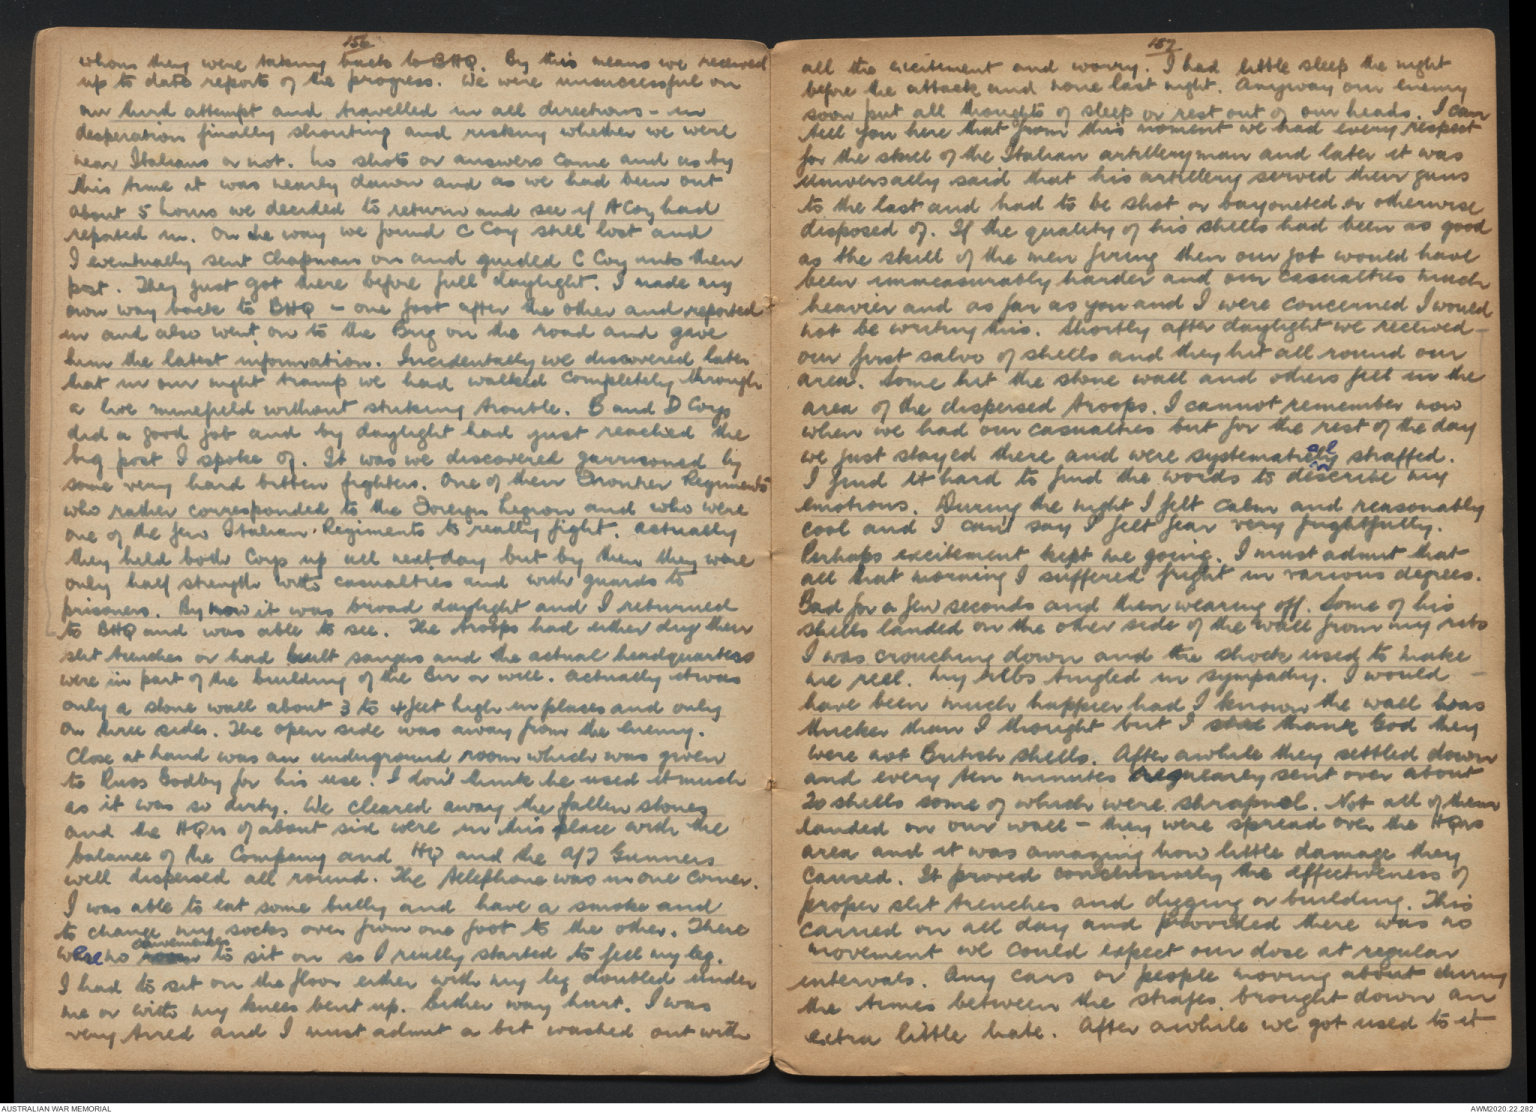 156
whom they were taking back to BHQ. By this means we received
up to date reports of the progress. We were unsuccessful on
our third attempt and travelled in all directions - in
desperation finally shouting and risking whether we were
near Italians or not. No shots or answers came and as by
this time it was nearly dawn and as we had been out
about 5 hours we decided to return and see if A Coy had
reported in. On the way we found C Coy still lost and
I eventually sent Chapman on and guided C Coy into their
post. They just got there before full daylight. I made my
own way back to BHQ - one foot after the other and reported
in and also went on to the Brig on the road and gave
him the latest information. Incidentally we discovered later
that in our night tramp we had walked completely through
a live minefield without striking trouble. B and D Coys
did a good job and by daylight had just reached the
big post I spoke of. It was we discovered garrisoned by
some very hard bitten fighters. One of their Frontier Regiments
who rather corresponded to the Foreign Legion and who were
one of the few Italian Regiments to really fight. Actually
they held both Coys up all next day but by then they were
only half strength with casualties and with guards to
prisoners. By now it was broad daylight and I returned
to BHQ and was able to see. The troops had either dug their
slit trenches or had built sangars and the actual headquarters
were in part of the building of the Bir or well. Actually it was
only a stone wall about 3 to 4 feet high in places and only
on three sides. The open side was away from the enemy.
Close at hand was an underground room which was given
to Russ Godby for his use. I don't think he used it much
as it was so dirty. We cleared away the fallen stones
and the HQrs of about six were in this place with the
balance of the Company and HQ and the A/T Gunners
well dispersed all round. The telephone was in one corner.
I was able to eat some bully and have a smoke and
to change my socks over from one foot to the other. There
were no conveniences to sit on so I really started to feel my leg.
I had to sit on the floor either with my leg doubled under
me or with my knees bent up. Either way hurt. I was
very tired and I must admit a bit washed out with
157
all the excitement and worry. I had little sleep the night
before the attack and none last night. Anyway our enemy
soon put all thoughts of sleep or rest out of our heads. I can
tell you here that from this moment we had every respect
for the skill of the Italian artilleryman and later it was
universally said that his artillery served their guns
to the last and had to be shot or bayoneted or otherwise
disposed of. If the quality of his shells had been as good
as the skill of the men firing then our job would have
been immeasurably harder and our casualties much
heavier and as far as you and I were concerned I would
not be writing this. Shortly after daylight we received
our first salvo of shells and they hit all round our
area. Some hit the stone wall and others fell in the
area of the dispersed troops. I cannot remember now
when we had our casualties but for the rest of the day
we just stayed there and were systematically straffed.
I find it hard to find the words to describe my
emotions. During the night I felt calm and reasonably
cool and I can't say I felt fear very frightfully.
Perhaps excitement kept me going. I must admit that
all that morning I suffered fright in various degrees.
Bad for a few seconds and then wearing off. Some of his
shells landed on the other side of the wall from my ribs
I was crouching down and the shock used to make
me reel. My ribs tingled in sympathy. I would
have been much happier had I known the wall was
thicker than I thought but I still thank God they
were not British shells. After awhile they settled down
and every ten minutes regularly sent over about
20 shells some of which were shrapnel. Not all of them
landed on our wall - they were spread over the HQrs
area and it was amazing how little damage they
caused. It proved conclusively the effectiveness of
proper slit trenches and digging or building. This
carried on all day and provided there was no
movement we could expect our dose at regular
intervals. Any cars or people moving about during
the times between the strafes brought down an
extra little hate. After awhile we got used to it
AUSTRALIAN WAR MEMORIAL
AWM2020.22.282